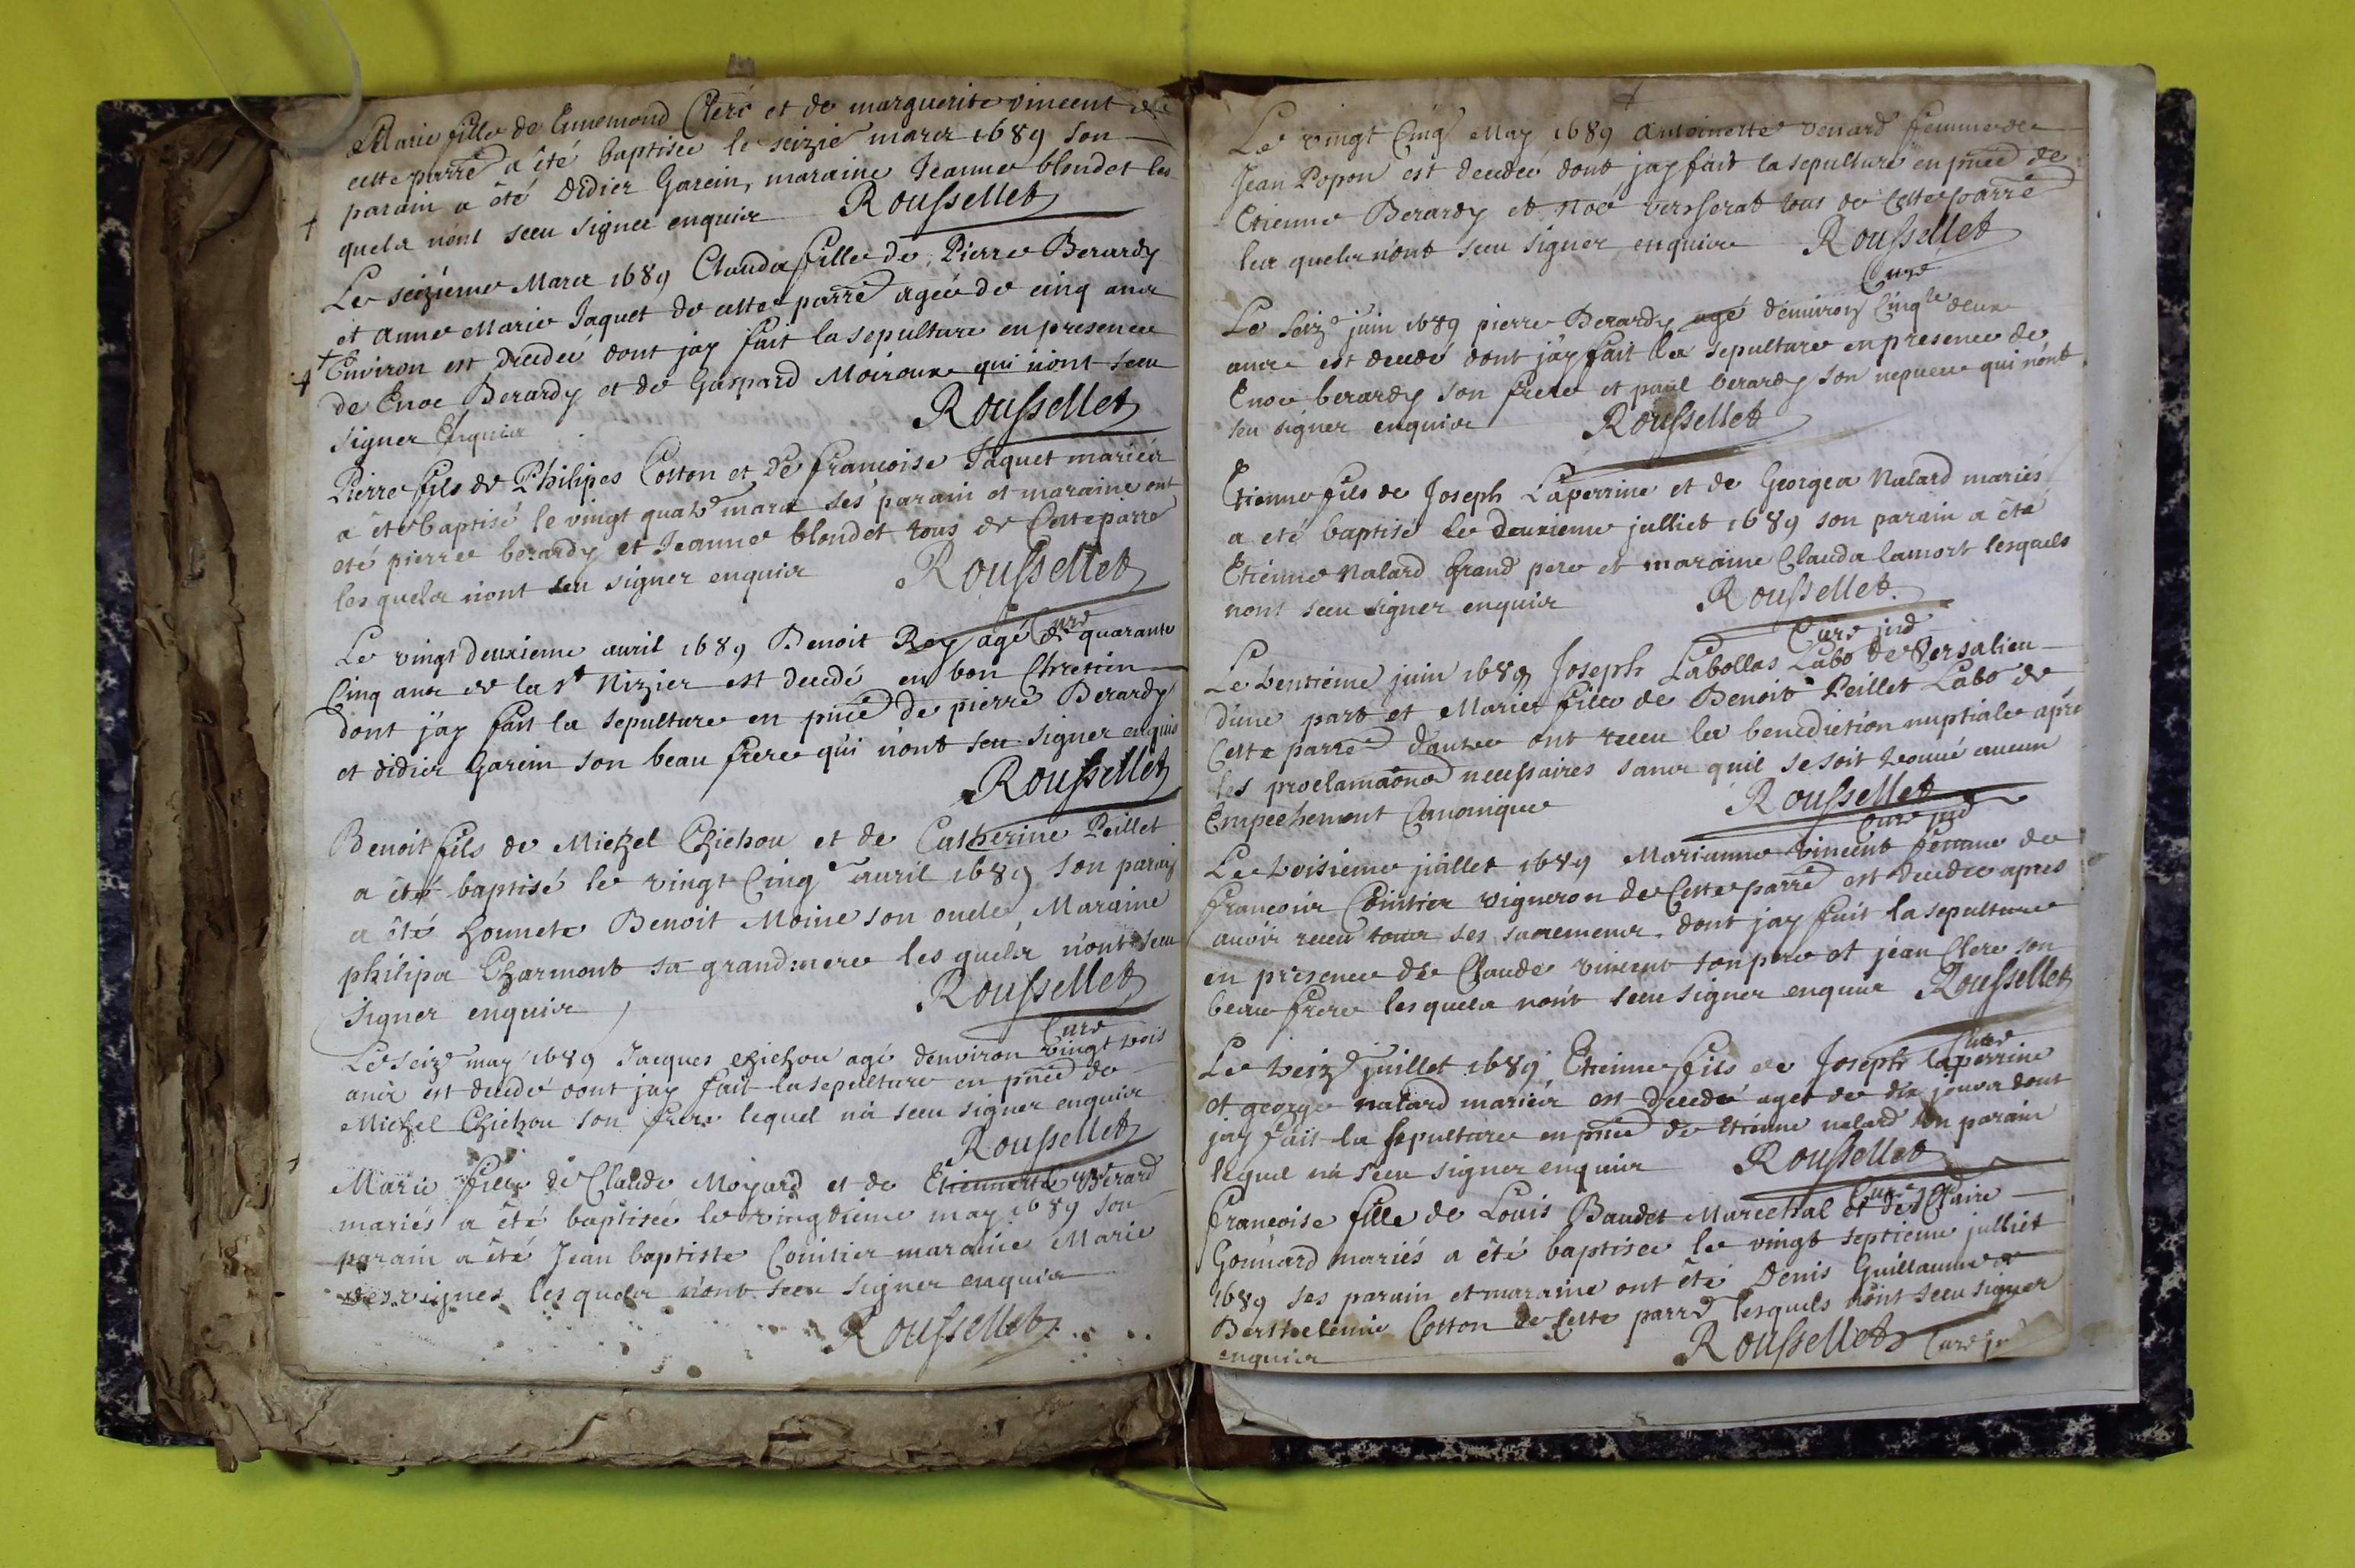 Marie fille de Ennemond Clerc et de marguerite vincent de
cette parrè a êté baptisée le seizie mars 1689 son
parain a êté Didier Garcin, maraine Jeanne blondet les
quels nont sceu signer enquis Roussellet
Le seizieme Mars 1689 Clauda fille de Pierre Berardy
et Anne Marie Jaquet de cette parrè agée de cinq ans
Environ est decedée dont jay fait la sepulture en presence
de Enoc Berardy et de Gaspard Moiroux qui nont sceu
signer Enquis Roussellet
Pierre fils de Philipes Cotton et de francoise Jaquet mariés
a êté baptisé le vingt quatre mars ses parain et maraine ont
eté pierre berardy et Jeanne blondet tous de Cette parre
les quels nont sceu signer enquis Roussellet
Curé
Le vingt deuxieme avril 1689 Benoit Rey agé de quarante
Cinq ans de la st Nizier est decedé en bon Chretien
dont jay fait la sepulture en pnce de pierre Berardy
et didier Garcin son beau frere qui nont sceu signer enquis
Roussellet
Benoit fils de Michel Chichou et de Catherine Peillet
a êté baptisé le vingt Cinqe avril 1689 son parain
a êté honnete Benoit Moine son oncle Maraine
philipa Charmont sa grandmere les quels nont sceu
signer enquis Roussellet
Curé
Le seize may 1689 Jacques Chichou agé denviron vingt trois
ans est decedé dont jay fait la sepulture en pnce de
Michel Chichou son frere lequel na sceu signer enquis
Roussellet
Marie fille de Claude Moyard et de Etiennette Berard
mariés a êté baptisée le vingtieme may 1689 son
parain a êté Jean baptiste Cointier maraine Marie
desvignes les quels nont sceu signer enquis
Roussellet
Le vingt Cinq May 1689 Antoinette venard femme de
Jean Popon est decedée dont jay fait la sepulture en pnce de
Etienne Berardy et Noé versserat tous de Cette parrè
les quels nont sceu signer enquis Roussellet
Curé
Le seize juin 1689 pierre Berardy agé denviron Cinqte deux
ans est decedé dont jay fait la sepulture en presence de
Enoc berardy son frere et paul berardy son nepveu qui nont
sceu signer enquis Roussellet
Etienne fils de Joseph Laperrine et de Georgea Nalard mariés
a eté baptisé le deuxieme julliet 1689 son parain a êté
Etienne Nalard grand pere et maraine Clauda lamort lesquels
nont sceu signer enquis Roussellet
Curé jnd
Le trentieme juin 1689 Joseph Labollas Labo de Versalieu
dune part et Marie fille de Benoit Peillet Labo de
Cette parrè dautre ont receu la benediction nuptiale apre
les proclamaons necessaires sans quil se soit trouué aucun
Empechement Canonique Roussellet
Curé jnd
Le troisieme juillet 1689 Marianne vincent femme de
francois Cointier vigneron de Cette parrè est decedée apres
auoir receu tous ses sacrements dont jay fait la sepulture
en presence de Claude vincent son pere et jean Clerc son
beau frere lesquels nont sceu signer enquis Roussellet
Curé
Le treize juillet 1689 Etienne fils de Joseph laperrine
et george nalard mariés est decedé agé de dix jours dont
jay fait la sepulture en pnce de etienne nalard son parain
lequel na sceu signer enquis Roussellet
Curé jnd
francoise fille de Louis Baudet Marechal et de Claire
Gonnard mariés a êté baptisée le vingt septieme julliet
1689 ses parain et maraine ont êté Denis Guillaume et
Berthelemie Cotton de Cette parrè lesquels nont sceu signer
enquis Roussellet Curé